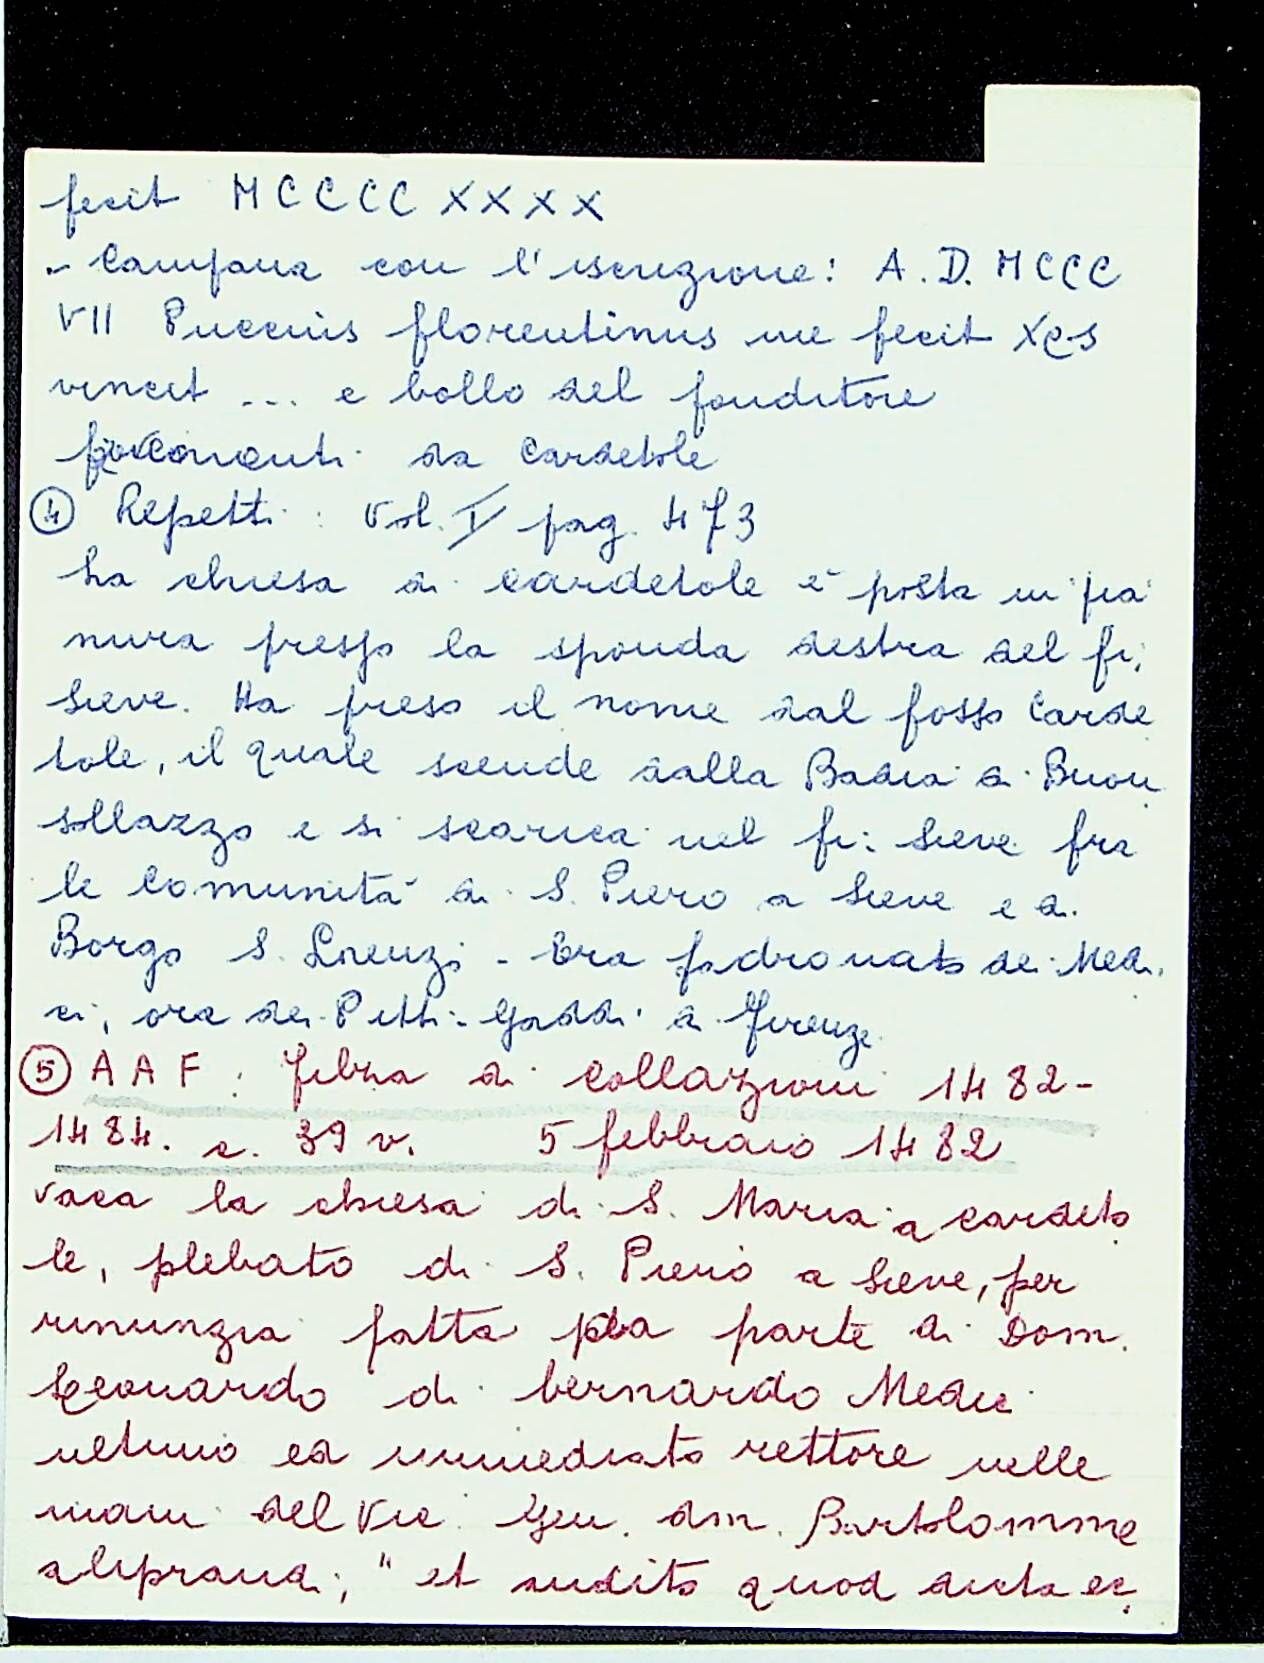 fecit MCCCCXXXX
- Campana con l'iscrizione: A.D. MCCC
VII Puccius florentinus me fecit XPS
vincit ... e bollo del fonditore
provenienti da Cardetole
④ Repetti: Vol. I pag. 473
La chiesa di Cardetole è posta in pia
nura presso la sponda destra del fi.
Sieve. Ha preso il nome dal fosso Carde
tole, il quale scende dalla Badia di Buon
sollazzo e si scarica nel fi: Sieve fra
le comunità di S. Piero a Sieve e di
Borgo S. Lorenzo - Era padronato dei Medi
ci, ora dei Pitti-Gaddi di Firenze
⑤ AAF: Filza di collazioni 1482-
1484. c. 39 v. 5 febbraio 1482
vaca la chiesa di S. Maria a Cardeto
le, plebato di S. Piero a Sieve, per
rinunzia fatta da parte di Dom.
Leonardo di bernardo Medici
ultimo ed immediato rettore nelle
mani del Vic. Gen. dm. Bartolommeo
aliprandi, "et audito quod dicta ec